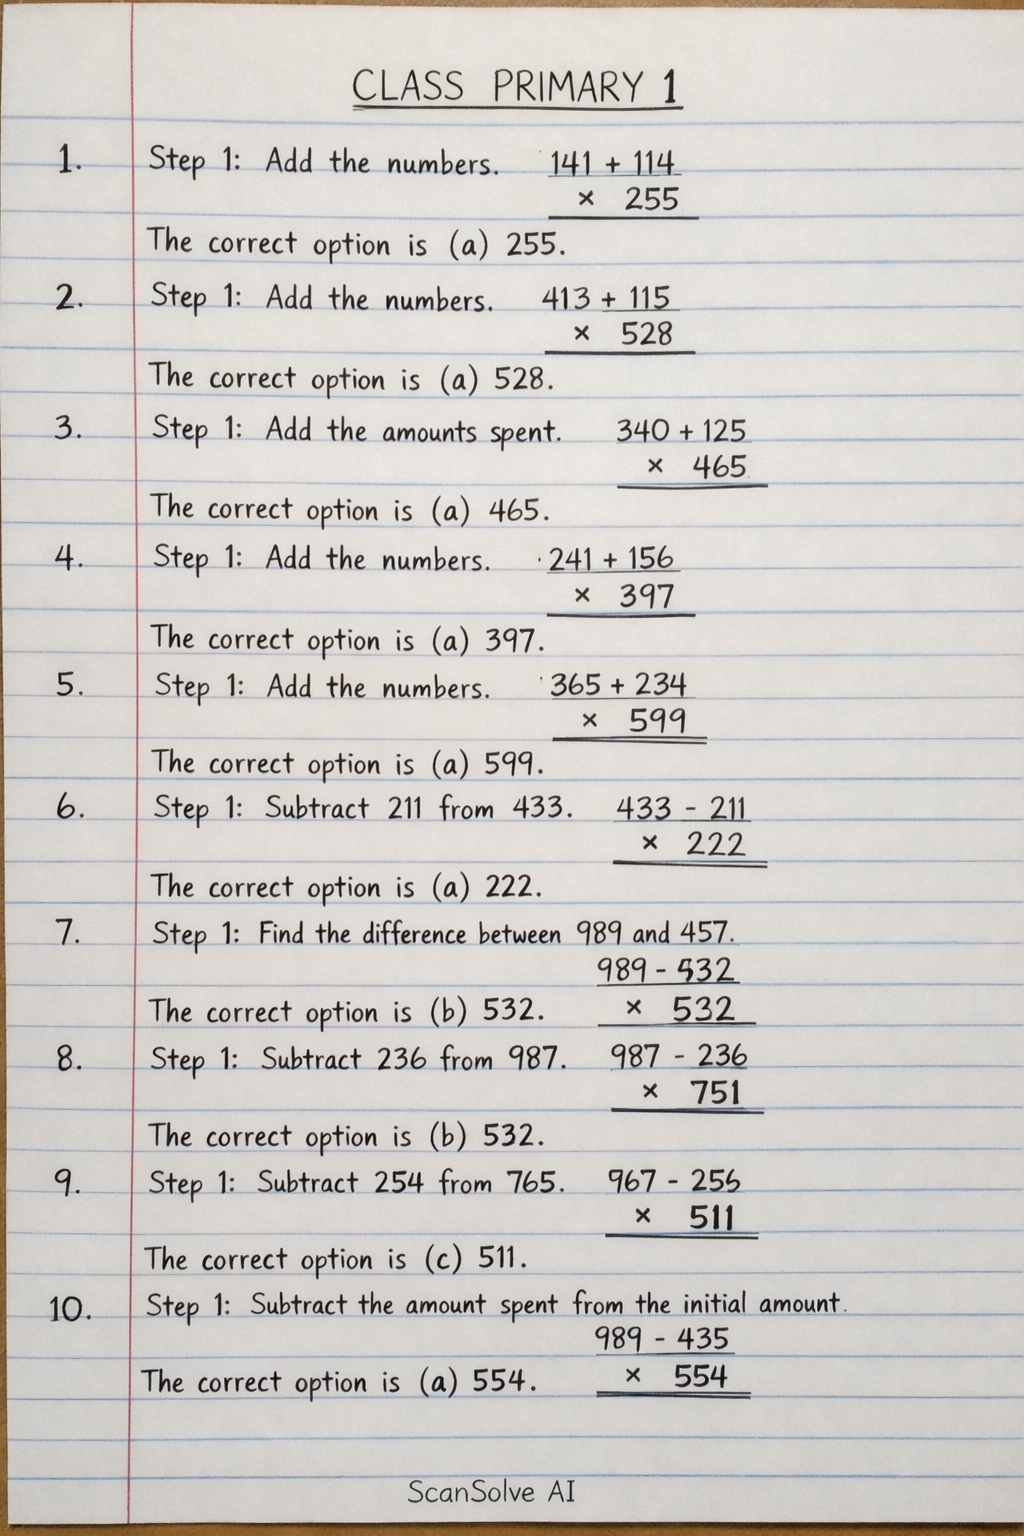 CLASS PRIMARY 1
1. Step 1: Add the numbers. 141 + 114
× 255
The correct option is (a) 255.
2. Step 1: Add the numbers. 413 + 115
× 528
The correct option is (a) 528.
3. Step 1: Add the amounts spent. 340 + 125
× 465
The correct option is (a) 465.
4. Step 1: Add the numbers. 241 + 156
× 397
The correct option is (a) 397.
5. Step 1: Add the numbers. 365 + 234
× 599
The correct option is (a) 599.
6. Step 1: Subtract 211 from 433. 433 - 211
× 222
The correct option is (a) 222.
7. Step 1: Find the difference between 989 and 457.
989 - 532
The correct option is (b) 532. × 532
8. Step 1: Subtract 236 from 987. 987 - 236
× 751
The correct option is (b) 532.
9. Step 1: Subtract 254 from 765. 967 - 256
× 511
The correct option is (c) 511.
10. Step 1: Subtract the amount spent from the initial amount.
989 - 435
The correct option is (a) 554. × 554
ScanSolve AI